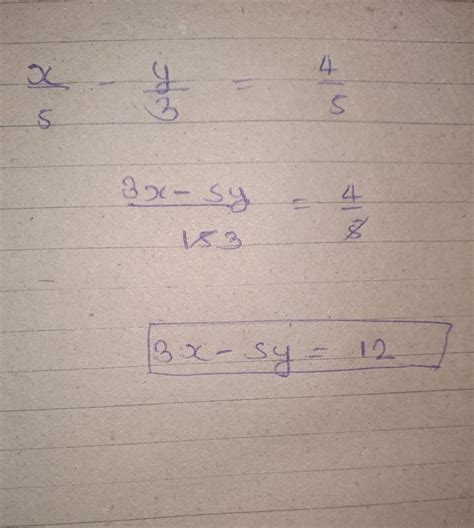 x/5 - y/3 = 4/5
3x-5y/15 3 = 4/5
3x-5y = 12